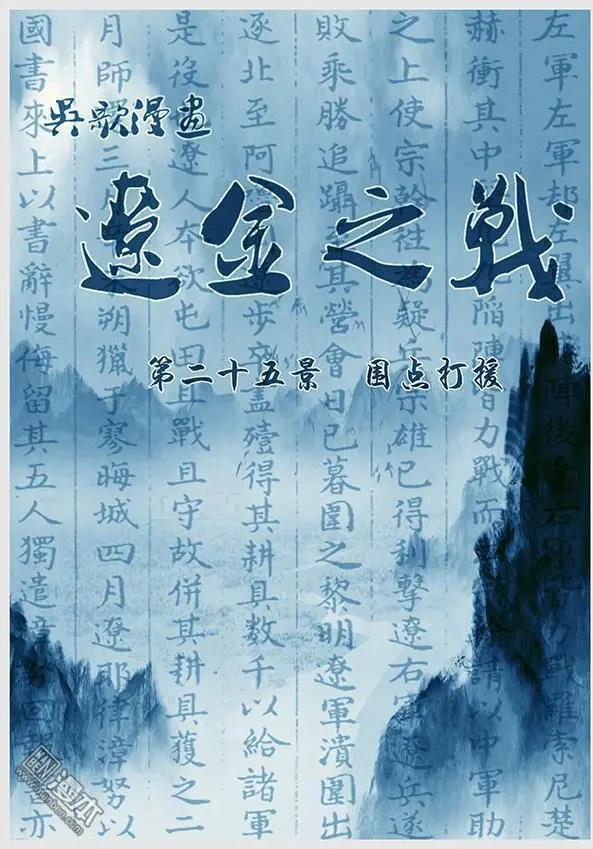 吳歌漫畫
遼金之戰
第二十五景 围点打援
左軍左軍却左翼出陣後右力戰羅索尼楚
赫衝其中陷陣力戰而請以中軍助
之上使宗幹往為疑兵宗雄已得利擊遼右軍遼兵遂
敗乘勝追躡至其營會日已暮圍之黎明遼軍潰圍出
逐北至阿步卒盡殪得其耕具数千以給諸軍
是役遼人本欲屯田且戰且守故併其耕具獲之二
月師三朔獵于寥晦城四月遼耶律漳努以
國書來上以書辭慢侮留其五人獨遣回報亦
漫本